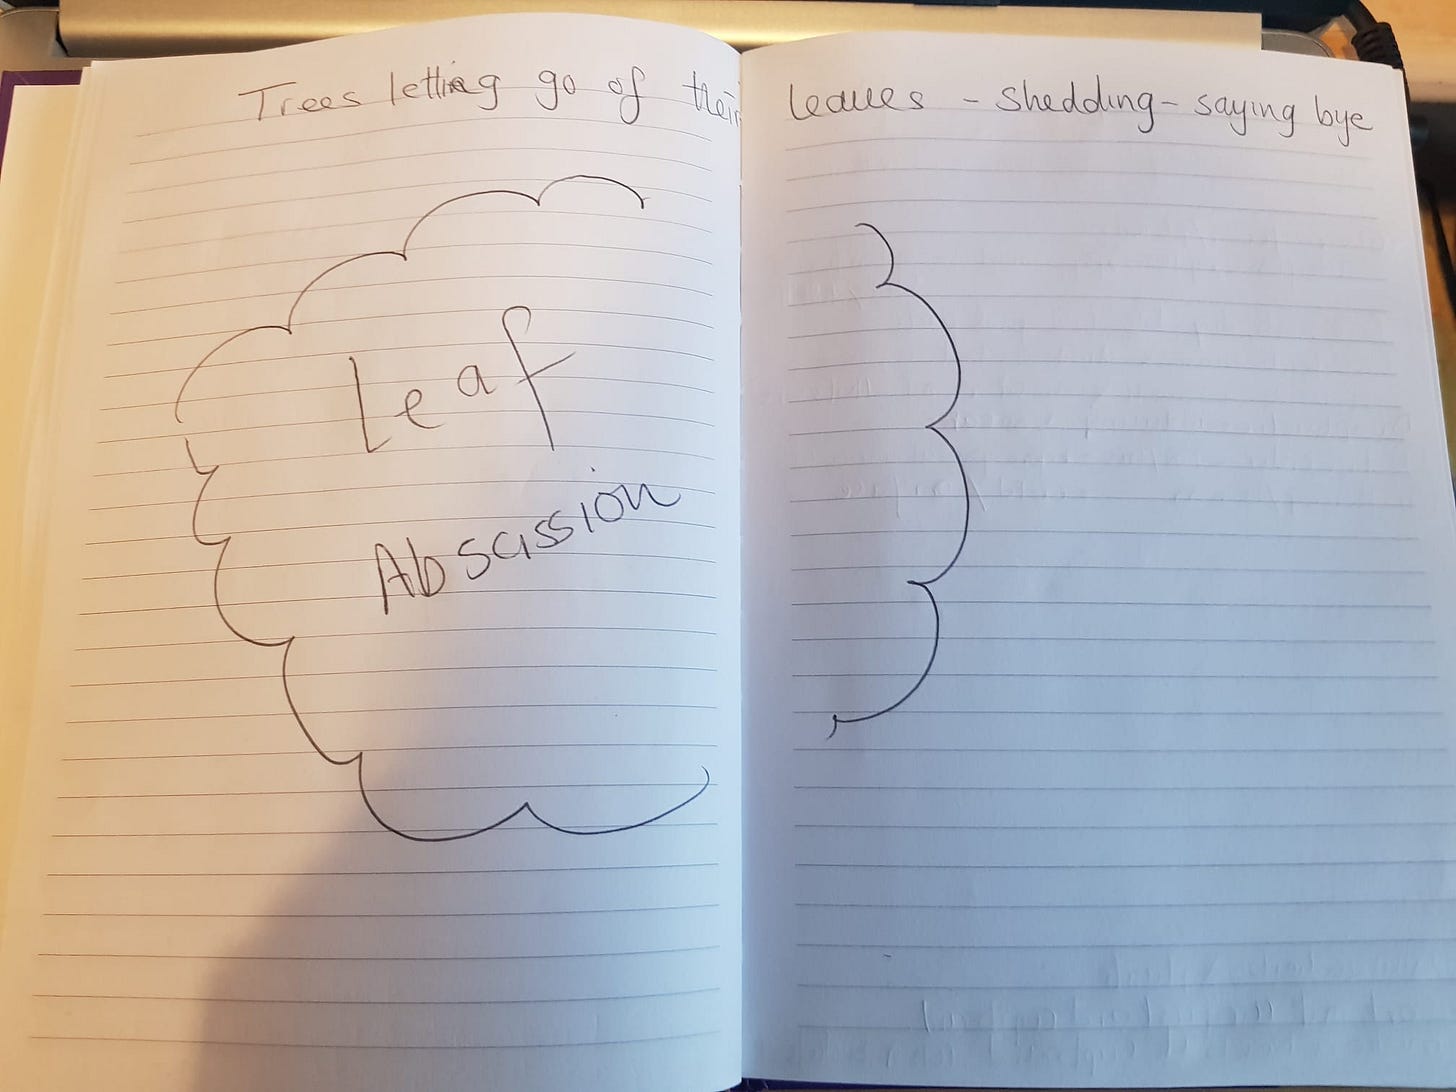 Trees letting go of their leaves - shedding - saying bye
Leaf
Abscission